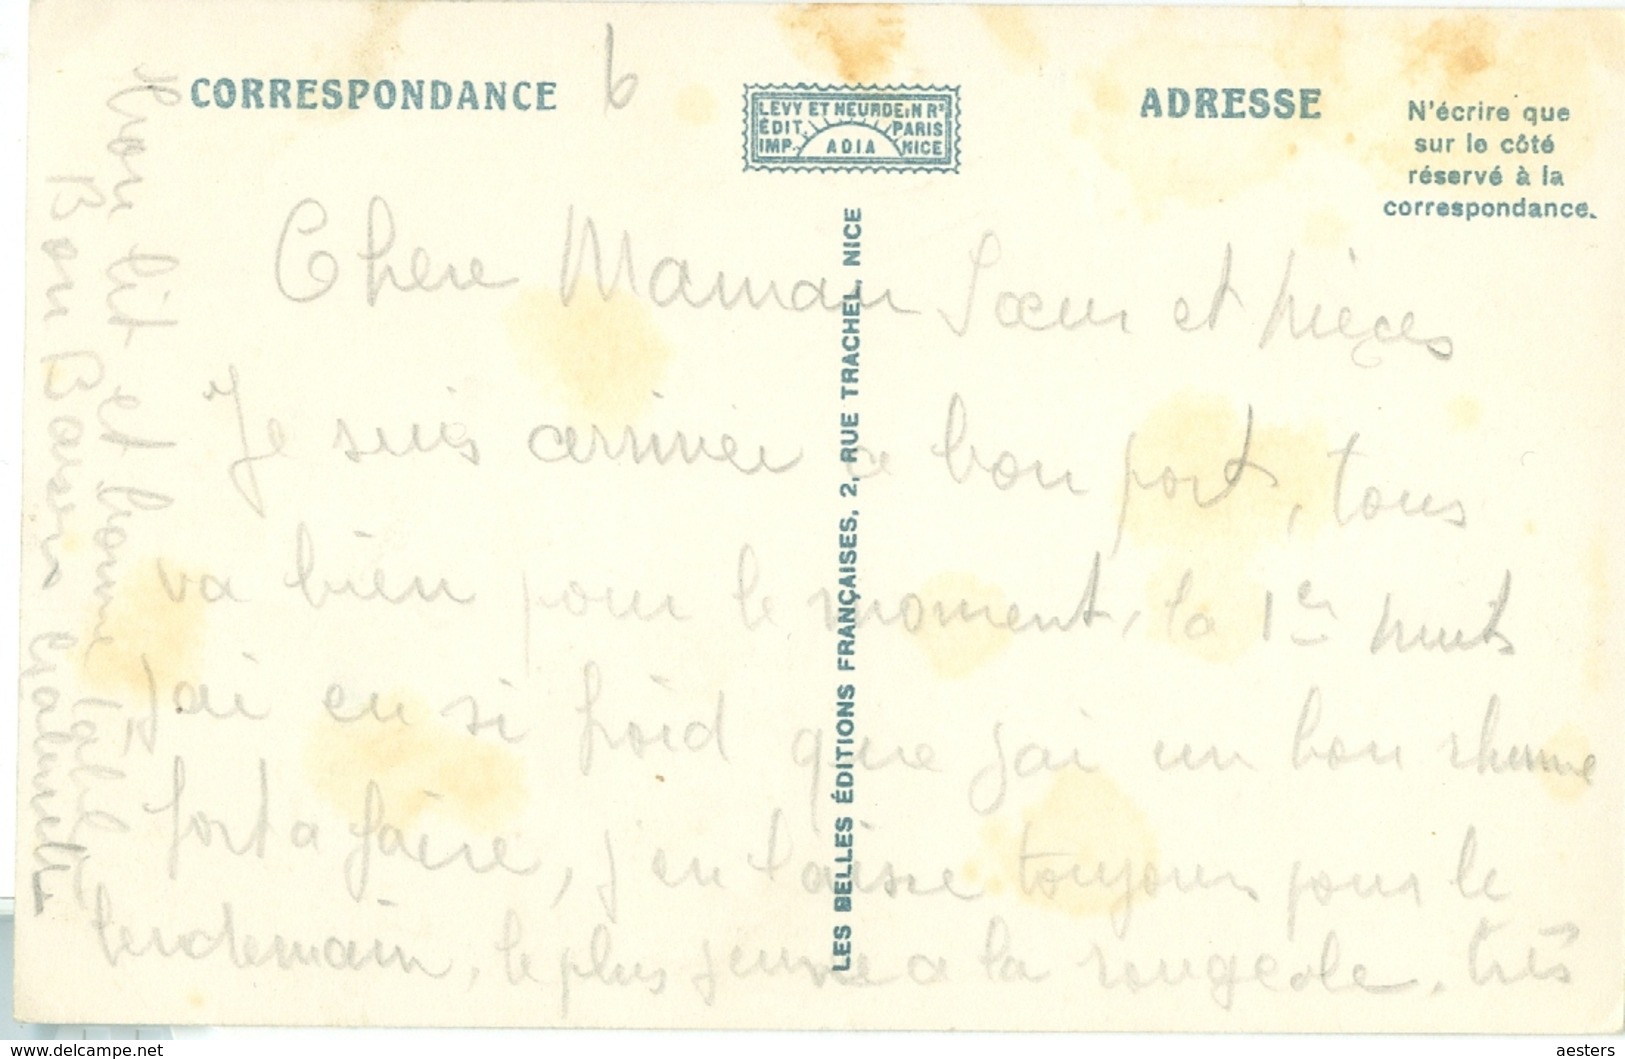 CORRESPONDANCE
6
LEVY ET NEURDEIN Rs
ÉDIT. PARIS
IMP. ADIA NICE
ADRESSE
N'écrire que
sur le côté
réservé à la
correspondance.
LES BELLES ÉDITIONS FRANÇAISES, 2, RUE TRACHEL, NICE
Chere Maman Sœur et nièces
Je suis arriver a bon port, tous
va bien pour le moment, la 1er nuits
j'ai eu si froid que j'ai un bon rhume
fort a faire, j'en laisse toujours pour le
lendemain, le plus jeune a la rougeole. très
bon lit et bonne table
Bon Baisers
delcampe.net
aesters